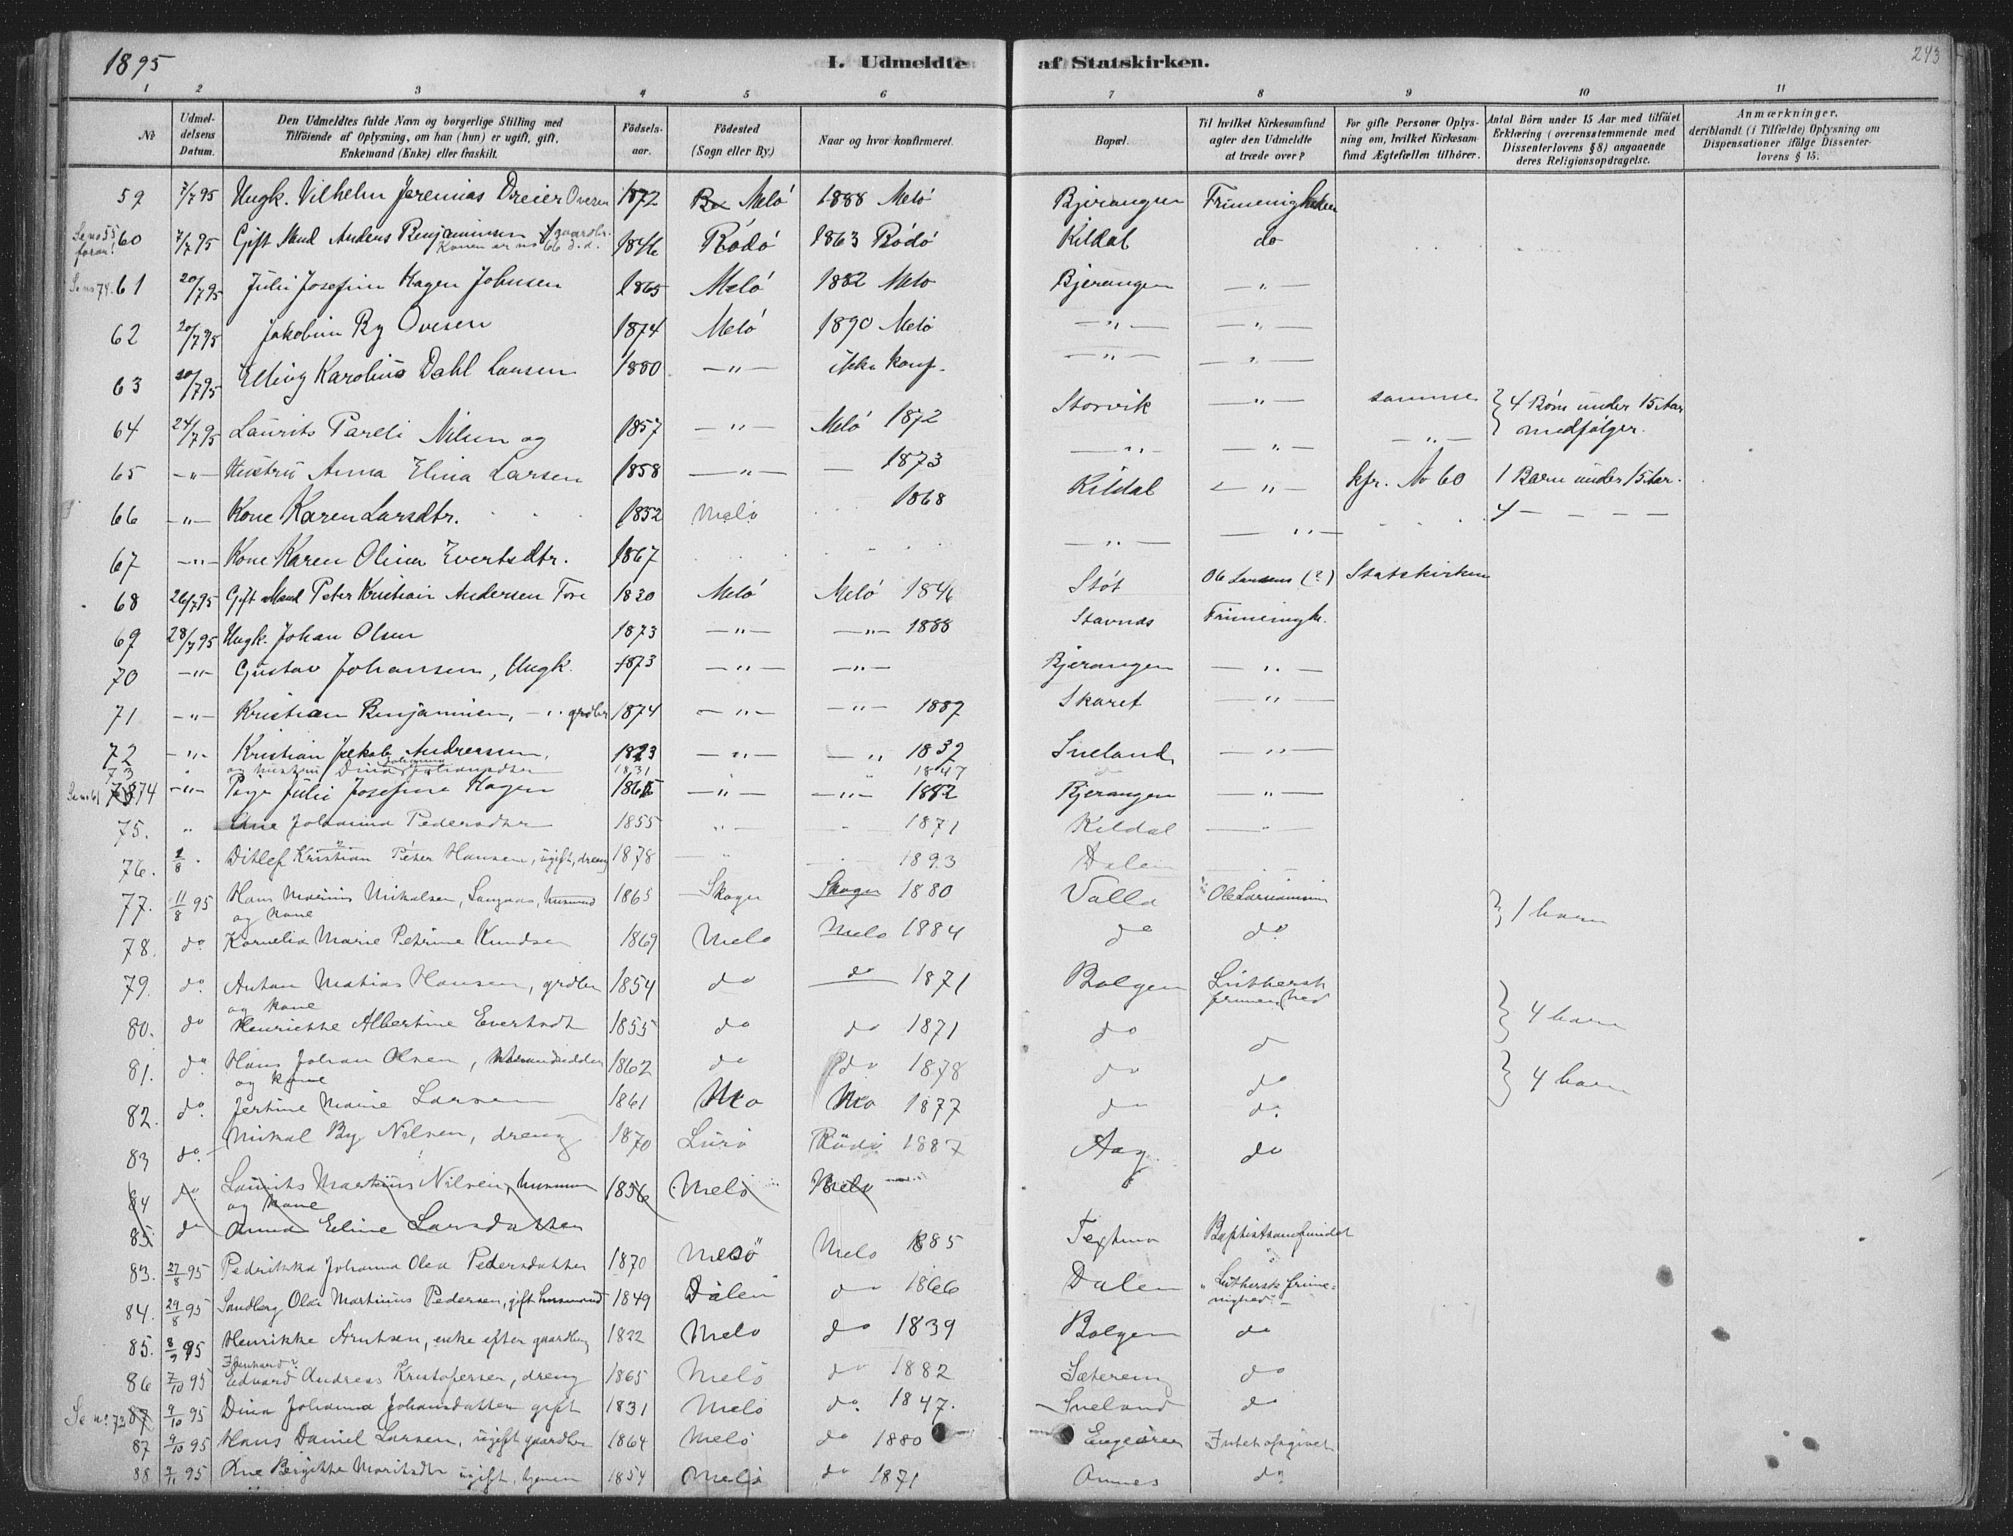 1895
I. Udmeldte af Statskirken.
243
1 2 3 4 5 6 7 8 9 10 11
No
Udmeldelsens Datum.
Den Udmeldtes fulde Navn og borgerlige Stilling med Tilföiende af Oplysning, om han (hun) er ugift, gift, Enkemand (Enke) eller fraskilt.
Födselsaar.
Födested (Sogn eller By.)
Naar og hvor konfirmeret.
Bopæl.
Til hvilket Kirkesamfund agter den Udmeldte at træde over?
For gifte Personer Oplysning om, hvilket Kirkesamfund Ægtefællen tilhörer.
Antal Börn under 15 Aar med tilföiet Erklæring (overensstemmende med Dissenterlovens § 8) angaaende deres Religionsopdragelse.
Anmærkninger, deriblandt (i Tilfælde) Oplysning om Dispensationer ifölge Dissenterlovens § 15.
59 7/7 95 Ungk. Vilhelm Jeremias Dreier Ovesen 1872 Melö 1888 Melö Bjerangen Frimenigheden
Se no 55 foran! 60 7/7 95 Gift Mand Anders Benjaminsen gaardbr. Konen er no 66 d.d. 1846 Rödö 1863 Rödö Kildal do
Se no 74. 61 20/7 95 Juli Josefine Hagen Johnsen 1865 Melö 1882 Melö Bjerangen — „ —
62 20/7 95 Jakobine By Ovesen 1874 Melö 1890 Melö — „ — — „ —
63 20/7 95 Elling Karolius Dahl Larsen 1880 — „ — ikke konf. — „ — — „ —
64 24/7 95 Laurits Pareli Nilsen og 1857 — „ — Melö 1872 Storvik — „ — samme } 4 Börn under 15 Aar medfölger.
65 — „ — Hustru Anna Elina Larsen 1858 — „ — — 1873 — „ — — „ — — „ —
66 — „ — Kone Karen Larsdtr. 1852 Melö 1868 Kildal — „ — kfr. No 60 1 Barn under 15 Aar.
67 — „ — Kone Karen Olina Evertsdtr. 1867 — „ — — „ — 4 — — — —
68 26/7 95 Gift Mand Peter Kristian Andersen Fore 1830 Melö Melö 1846 Stöt Ole Larsens (?) Statskirken
69 28/7 95 Ungk. Johan Olsen 1873 — „ — — „ — 1888 Stavnes Frimenigh.
70 — „ — Gustav Johansen, Ungk. 1873 — „ — — „ — Bjerangen — „ —
71 — „ — Kristian Benjaminsen, — „ — grdbr 1874 — „ — — „ — 1889 Skaret — „ —
72 — „ — Kristian Jakob Andreasen. 1823 — „ — „ 1839 Sneland — „ —
73 „ og hustru Dina Johanna Johansdtter 1831 „ „ 1847 do
Se no 61 74 — „ — Pige Juli Josefine Hagen 1865 — „ — — „ — 1882 Bjerangen — „ —
75. „ Ane Johanna Pedersdtter 1855 „ 1871 Kildal — „ —
76. 2/8 . Ditlef Kristian Peter Hansen, ugift, dreng 1878 „ 1893 Dalen
77. 11/8 95 Hans Marius Mikalsen, Langaas, husmand og kone 1865 Skoger Skoger 1880 Valla Ole Larsianismen } 1 barn
78. do. Kornelia Marie Petrine Knudsen 1869 Melö Melö 1884 do do.
79. do. Anton Matias Hansen, grdbr og kone 1854 do do 1871 Bolgen Luthersk frimenighed
80. do Henriette Albertine Evertsdt 1855 do do 1871 do do } 4 barn
81. do. Hans Johan Olsen, og kone 1862 do do 1878 do do } 4 barn
82. do. Jertine Marie Larsen 1861 Mo Mo 1877 do do.
83 do. Mikal By Nilsen, dreng 1870 Lurö Rödö 1887 Aag. do
84 do. Laurits Martinus Nilsen, husmand og kone 1856 Melö Melö
85. do Anna Eline Larsdatter
83. 27/8 95 Pedrikka Johanna Olea Pedersdatter 1870 Melö Melö 1885 Textmo Baptistsamfundet
84. 29/8 95 Sandberg Olai Martinus Pedersen, gift husmand 1849 Dalen do 1866 Dalen "Luthersk frimenighed"
85. 8/9 95 Henrikke Arntsen, enke efter gaardbr 1822 Melö do 1839 Bolgen do
86 7/10 95 Edvard Andreas Kristofersen, dreng 1865 Melö do 1882 Sætereng do
Se no. 73 87 9/10 95 Dina Johanna Johansdatter gift 1831 Melö do. 1847. Sneland do
87 9/10 95 Hans Daniel Larsen, ugift gaardbr 1864 Melö do 1880 Engeören Intet opgivet
88 9/11 95 Ane Bergitte Moritsdtr ugift, tjener 1854 Melö do 1871 Amnes do.